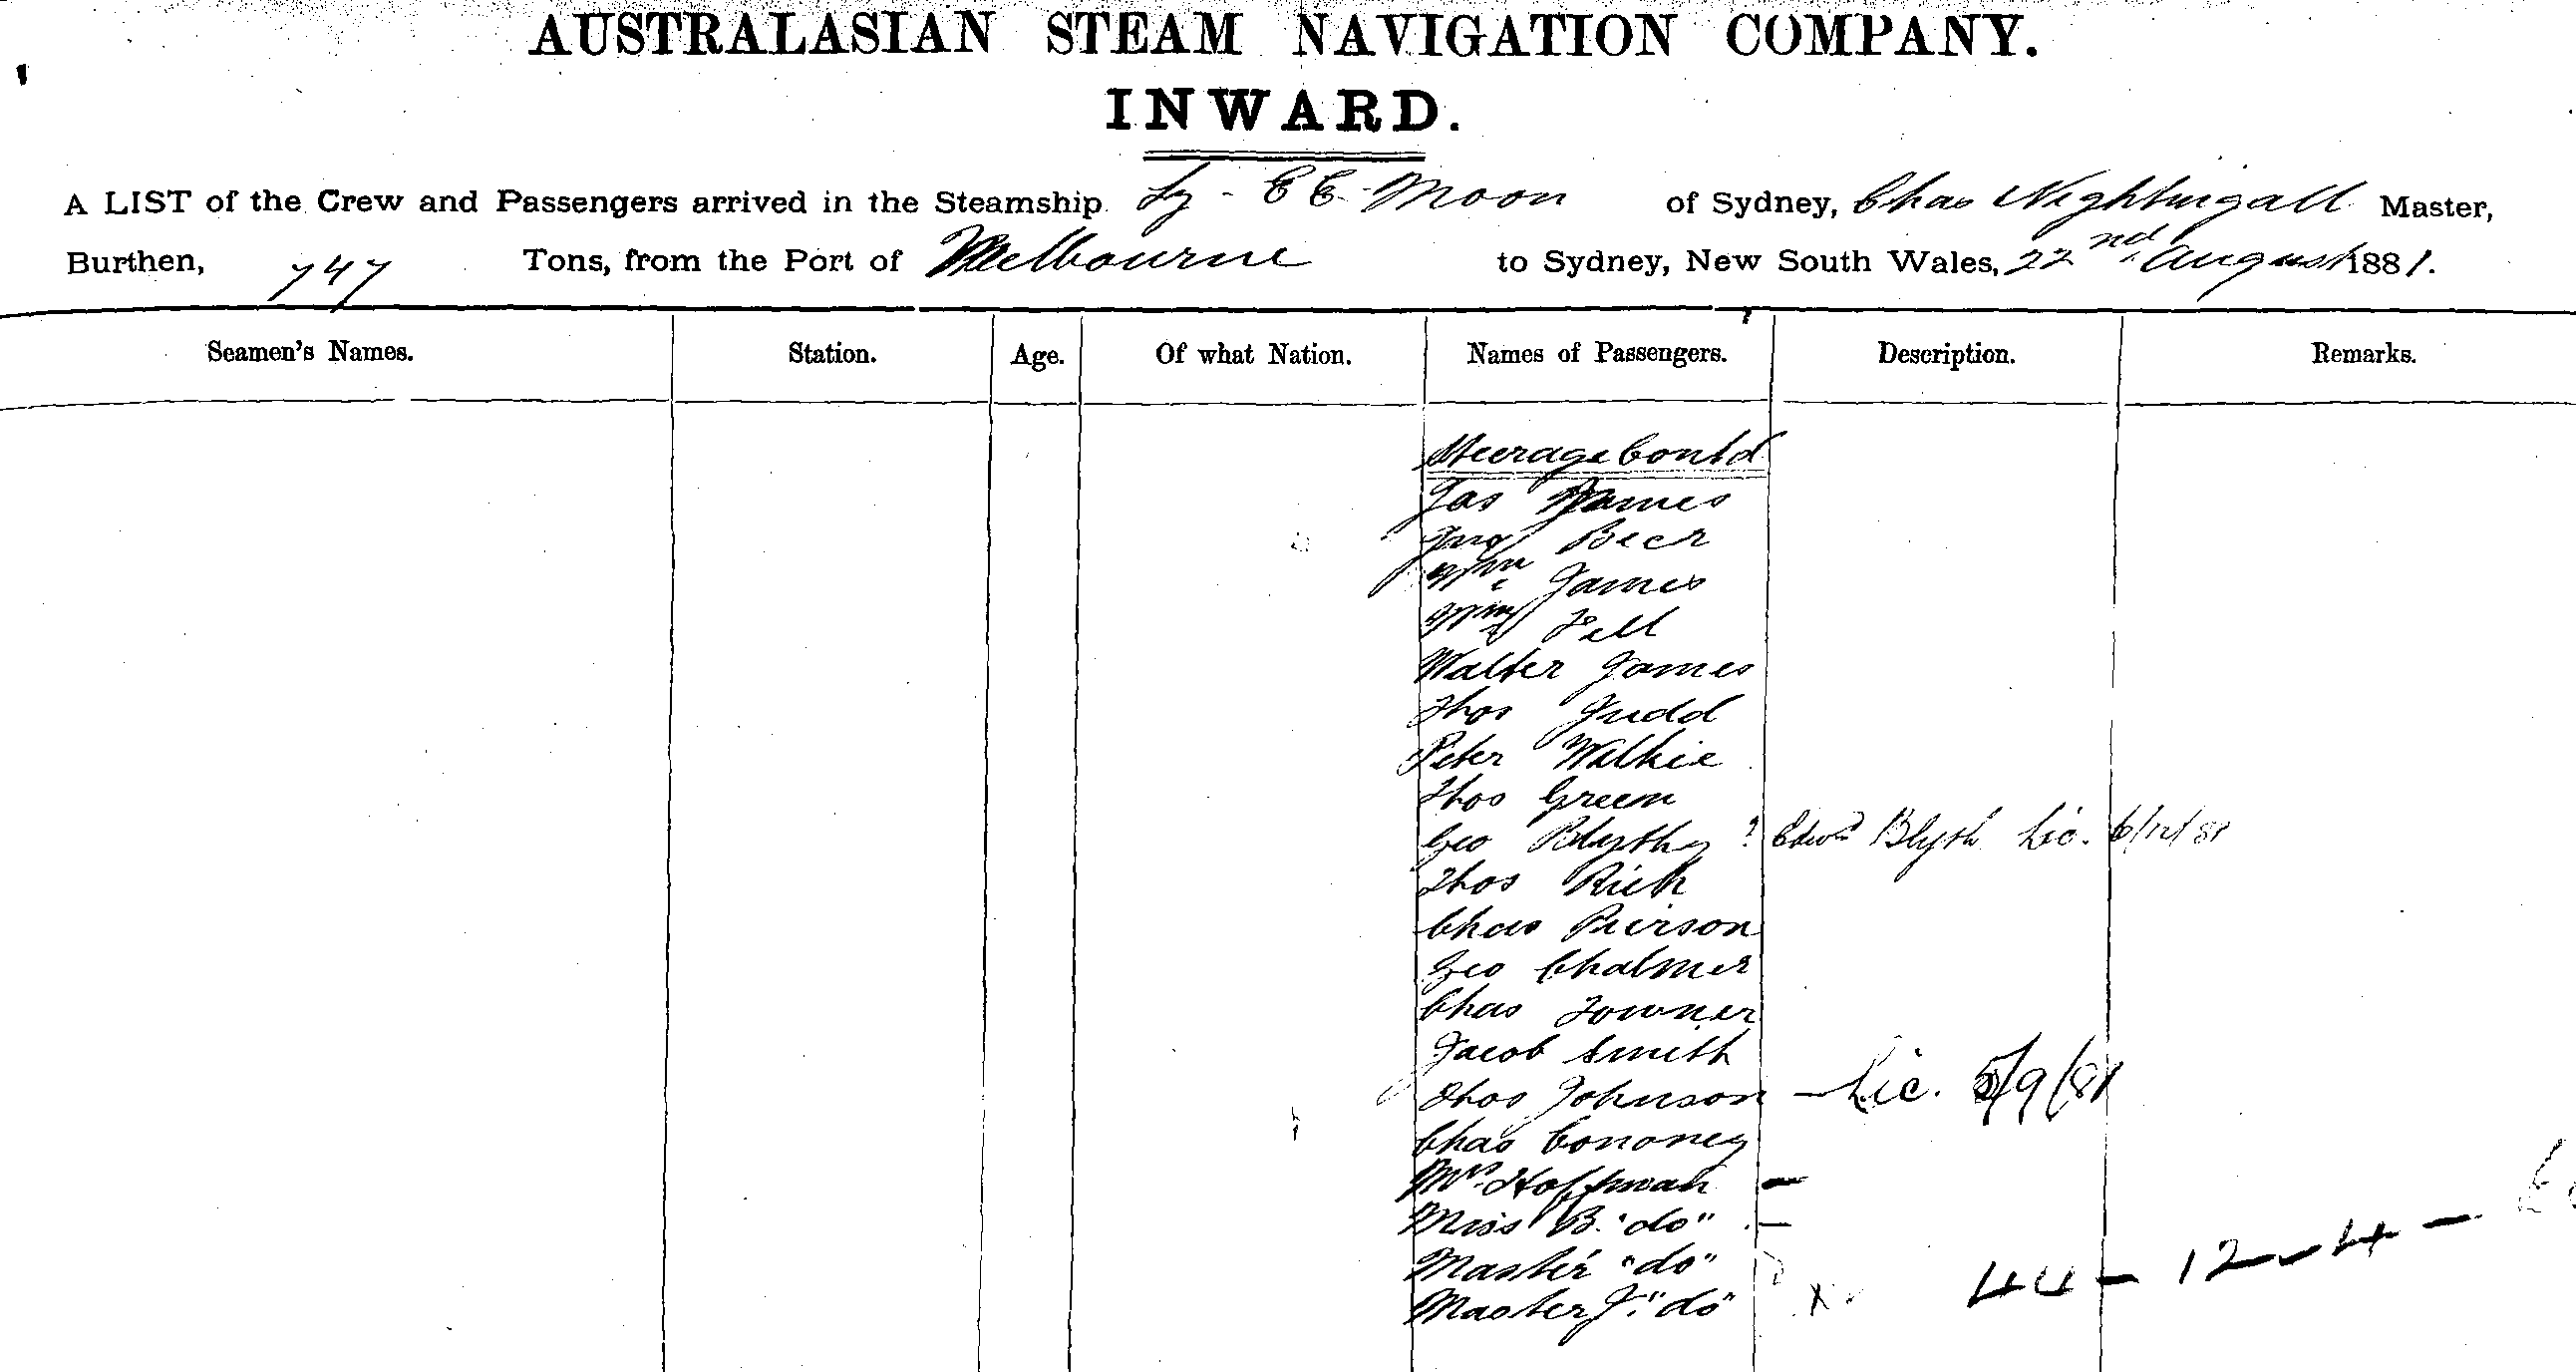 AUSTRALASIAN STEAM NAVIGATION COMPANY.
INWARD.
A LIST of the Crew and Passengers arrived in the Steamship Ly-EE-Moon of Sydney, Chas Nightingall Master,
Burthen, 747 Tons, from the Port of Melbourne to Sydney, New South Wales, 22nd August 1881.
Seamen's Names. Station. Age. Of what Nation. Names of Passengers. Description. Remarks.
Steerage Contd
Jas James
Beer
Wm James
Wm Fell
Walter James
Thos Judd
Peter Wilkie
Thos Green
Geo Blythy ? Edwd Blyth Lic. 6/12/81
Thos Rich
Chas Pierson
Geo Chalmer
Chas Towner
Jacob Smith
Thos Johnson — Lic. 5/9/81
Chas Cononey
Mrs Hoffman —
Miss B. "do" —
Master "do"
Master J. "do" x 44 - 12 - 4 -